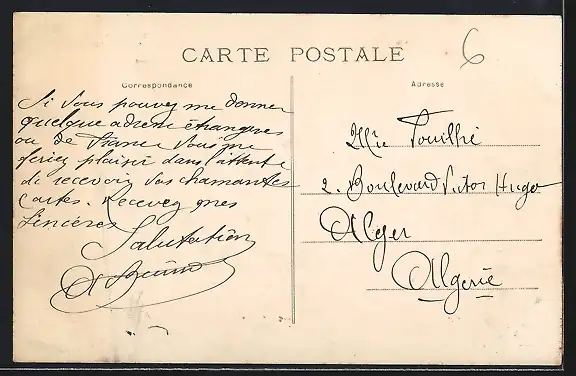 CARTE POSTALE
6
Correspondance
Adresse
Si vous pouvez me donner
quelque adresse étrangères
ou de France vous me
feriez plaisir dans l'attente
de recevoir vos charmantes
cartes. Recevez mes
sincères
Salutation
Mlle
2. Boulevard Victor Hugo
Alger
Algerie